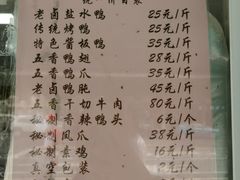 老卤盐水鸭 25元/斤
传统烤鸭 25元/斤
特色酱板鸭 35元/斤
五香鸭翅 28元/斤
五香鸭爪 35元/斤
老卤鸭肫 45元/斤
五香干切牛肉 80元/斤
秘制香辣鸭头 6元/个
秘制凤爪 38元/斤
秘制素鸡 16元/斤
真空包装 2元/个